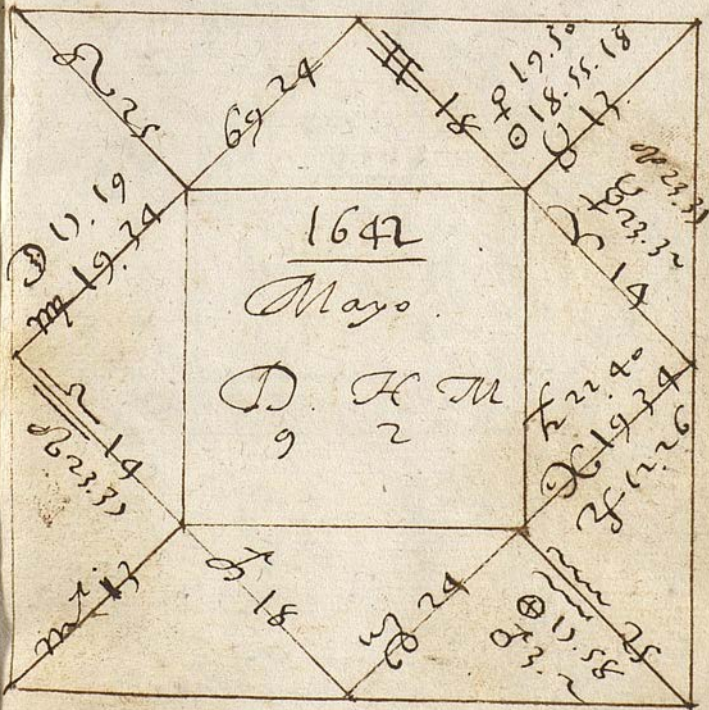 ♌ 25
♋ 24
♊ 18
♀ 19.50
☉ 18.55.18
♉ 13
☋ 23.37
☿ 23.32
♈ 14
☽ 17.19
♍ 19.34
1642
Mayo.
D. H M
9 2
♄ 22.40
♓ 19 34
♃ 12.26
♎ 14
☊ 23.37
♏ 13
♐ 18
♑ 24
♒ 25
⊗ 17.58
♂ 3.2